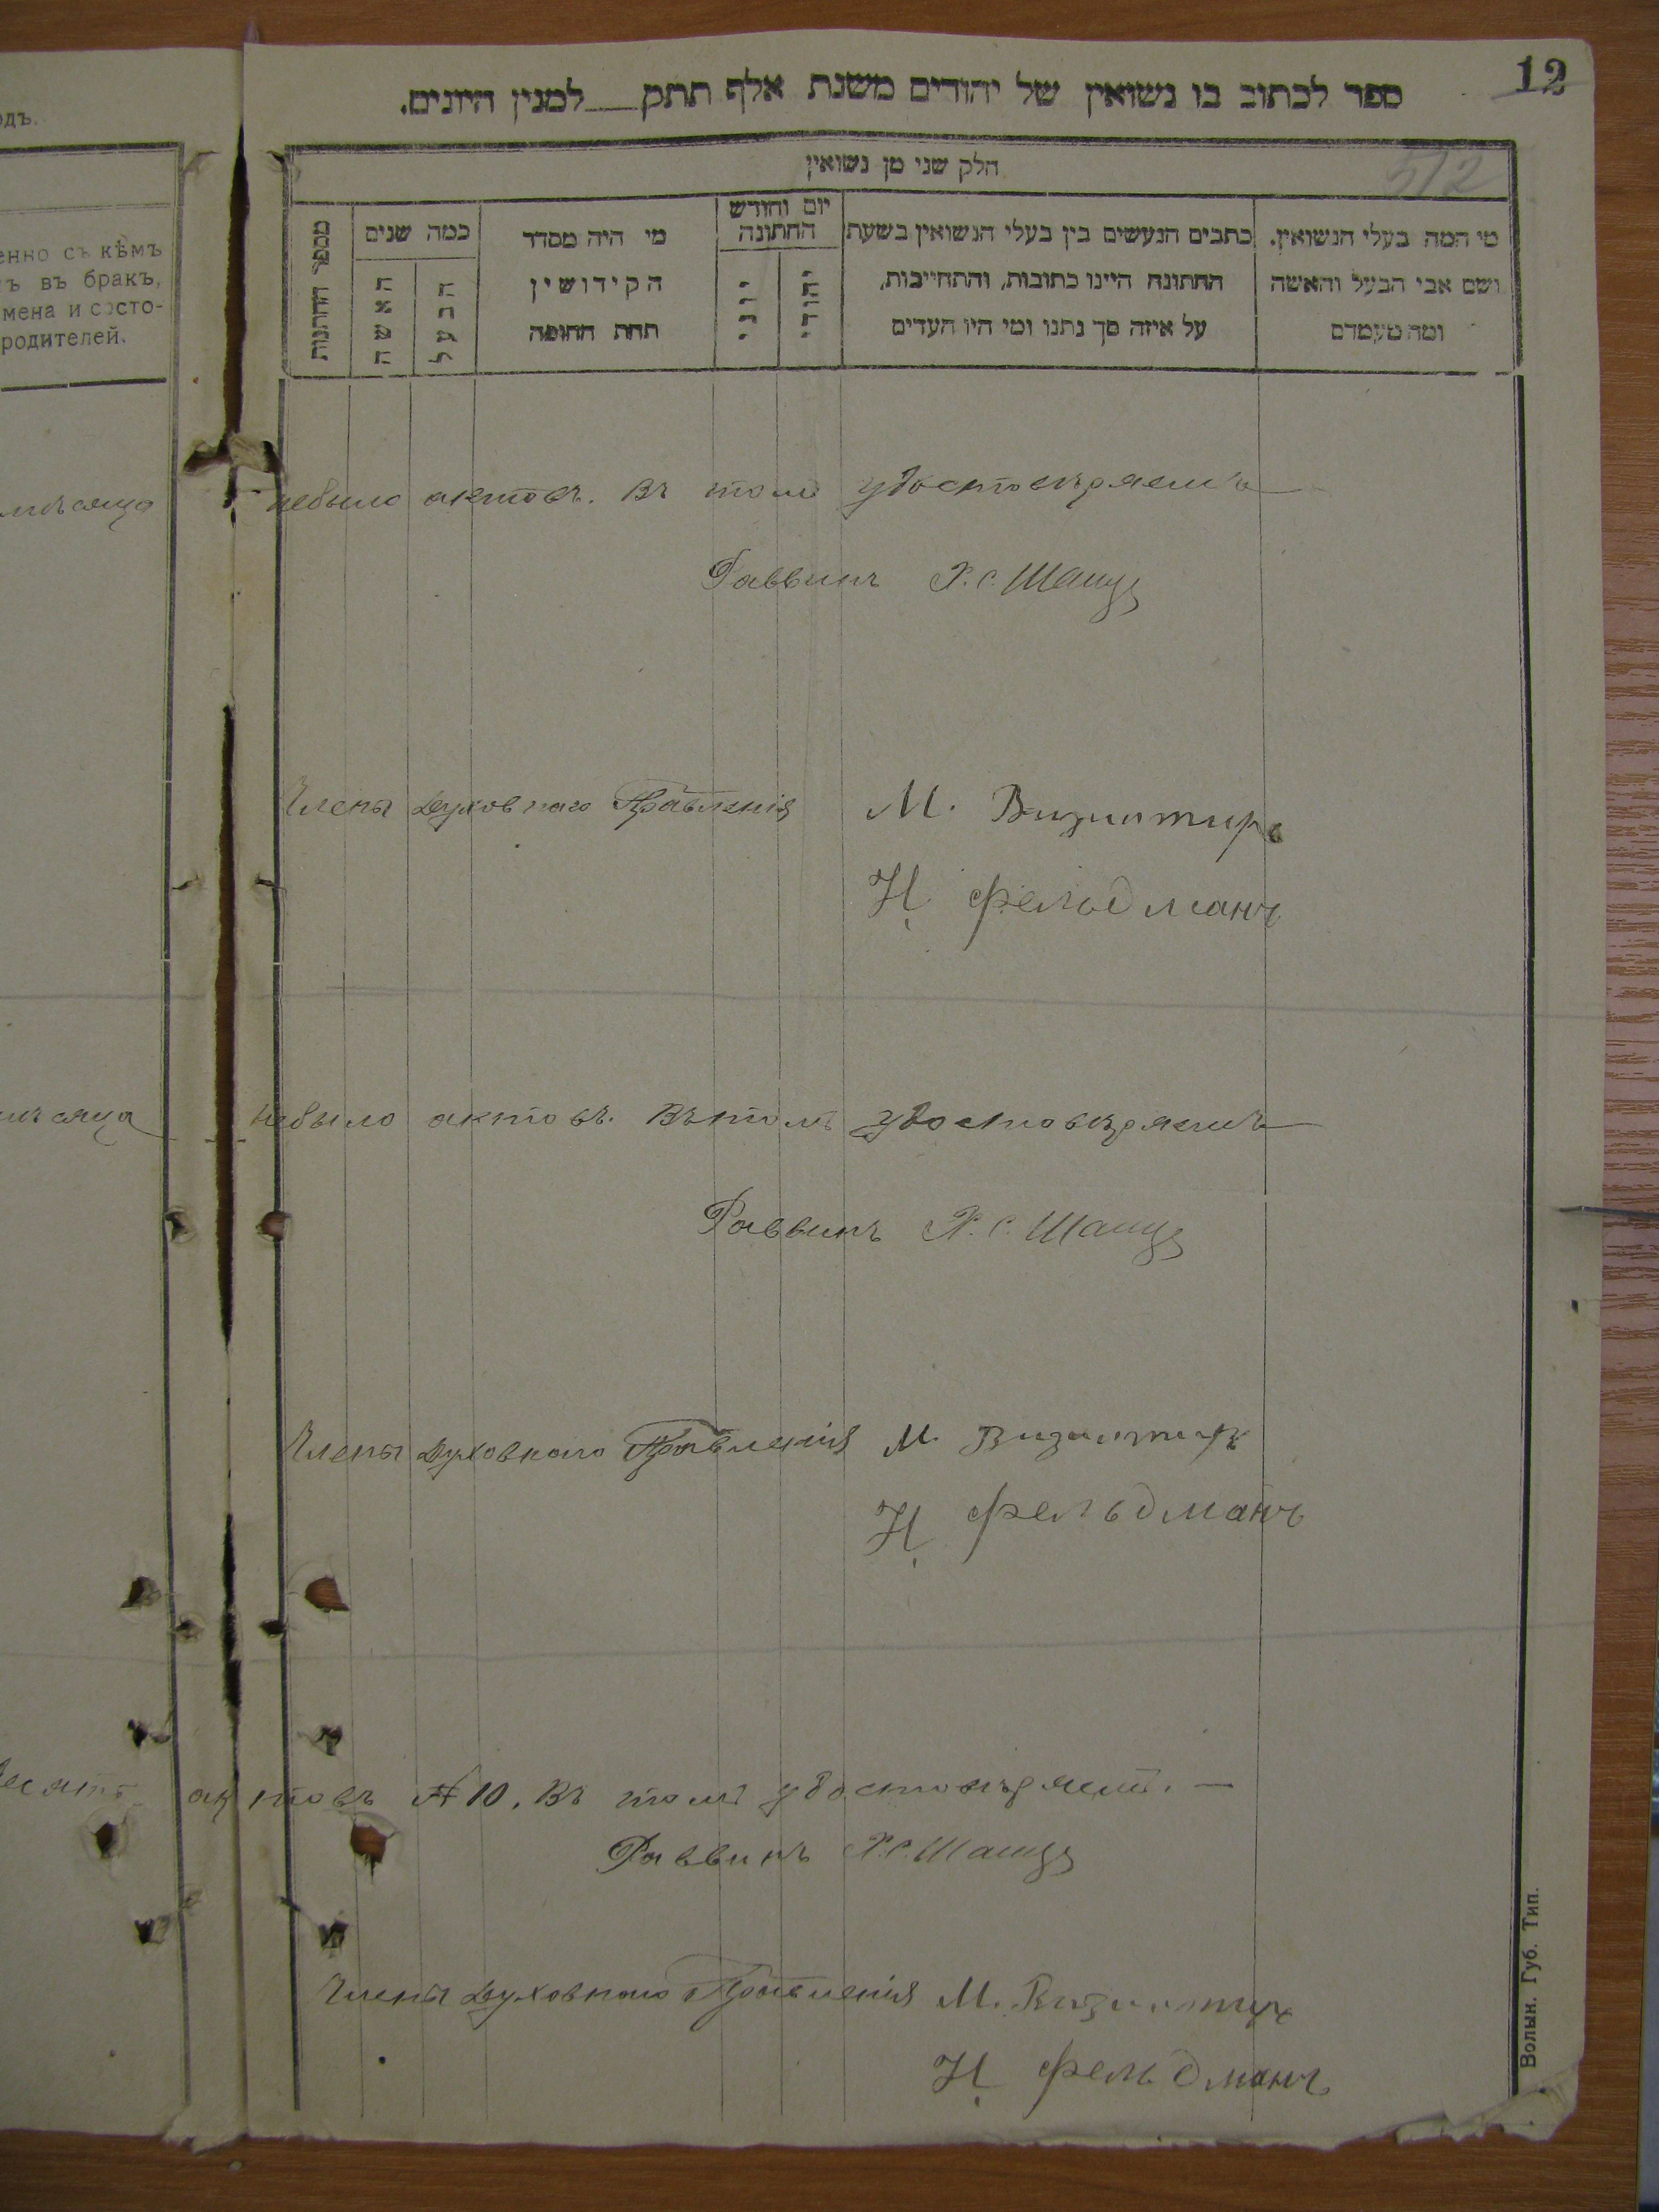 12
ספר לכתוב בו נשואין של יהודים משנת אלף תתק למנין היונים.
512
חלק שני מן נשואין
מספר החתונות
כמה שנים
האשה
הבעל
מי היה מסדר
הקידושין
תחת החופה
יום וחודש
החתונה
יוני
יהודי
כתבים הנעשים בין בעלי הנשואין בשעת
החתונה היינו כתובות, והתחייבות,
על איזה סך נתנו ומי היו העדים
מי המה בעלי הנשואין.
ושם אבי הבעל והאשה
ומה מעמדם
одъ.
енно съ кѣмъ
ъ въ бракъ,
мена и состо-
родителей.
мѣсяца небыло актовъ. Въ томъ удостовѣряемъ
Раввинъ Х. С. Шацъ
Члены Духовнаго Правленія М.
Н Фельдманъ
мѣсяца небыло актовъ. Въ томъ удостовѣряемъ
Раввинъ Х. С. Шацъ
Члены Духовнаго Правленія М.
Н Фельдманъ
актовъ № 10. Въ томъ удостовѣряемъ. —
Раввинъ Х. С. Шацъ
Члены Духовнаго Правленія М.
Н Фельдманъ
Волын. Губ. Тип.